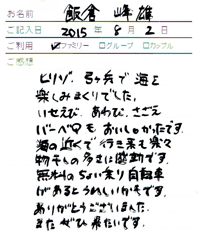 お名前 飯倉 峰雄
ご記入日 2015年 8月 2日
ご利用 ☑ファミリー □グループ □カップル
ご感想
ヒリゾ、弓ヶ浜で海を
楽しみまくりでした。
いせえび、あわび、さざえ
バーベQも おいしかったです。
海の近くで行き来も楽々
物そんの多さに感動です。
無料のちょい乗り自転車
があるとうれしいかもです。
ありがとうございました。
また ぜひ 来たいです。